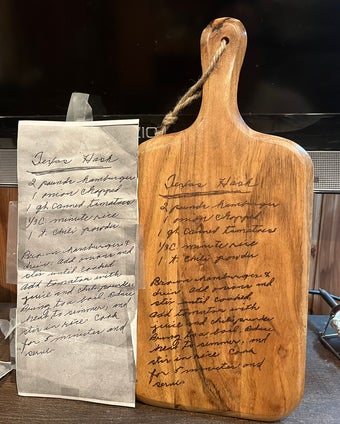 Texas Hash
2 pounds hamburger
1 onion chopped
1 qt canned tomatoes
1/3 C minute rice
1 t. chili powder
Brown hamburger &
add onions and
stir until cooked.
add tomatoes with
juice and chili powder
Bring to a boil, reduce
heat to simmer, and
stir in rice. Cook
for 5 minutes and
serve.
ZIO
Texas Hash
2 pounds hamburger
1 onion chopped
1 qt canned tomatoes
1/3 C minute rice
1 t. chili powder
Brown hamburger &
add onions and
stir until cooked.
add tomatoes with
juice and chili powder
Bring to a boil, reduce
heat to simmer, and
stir in rice. Cook
for 5 minutes and
serve.